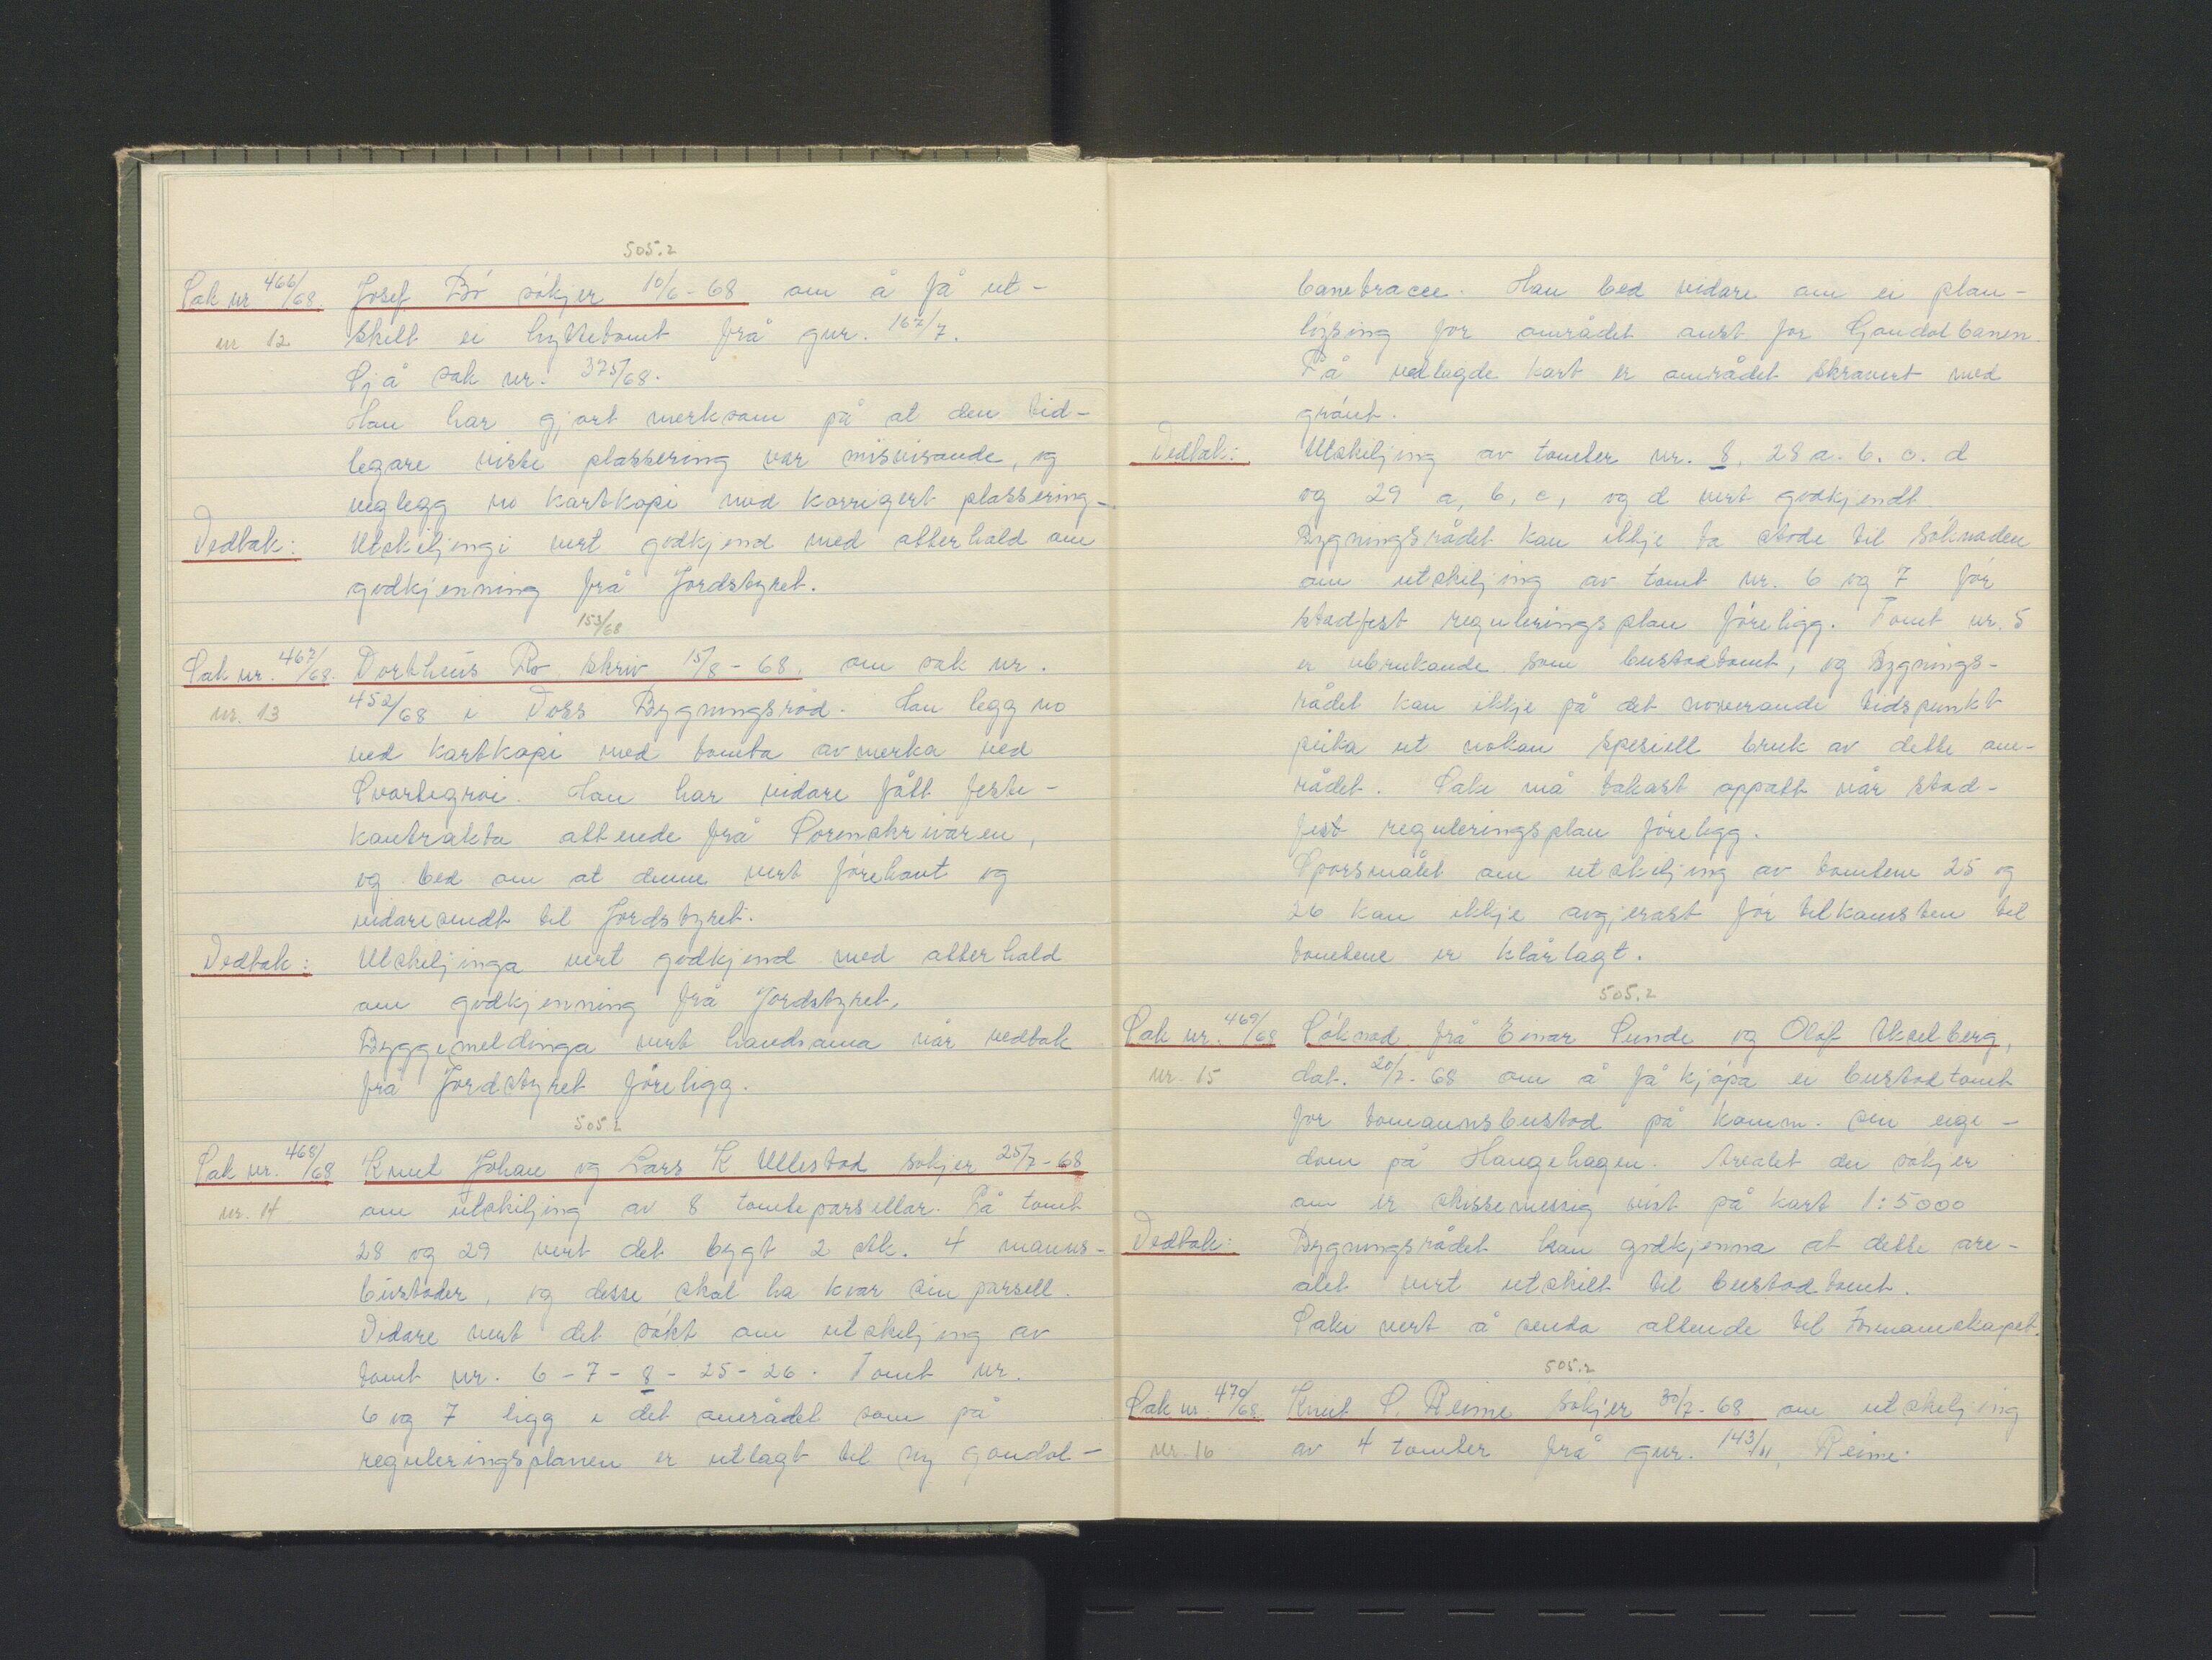 505.2
Sak nr 466/68. Josef Bø søkjer 10/6-68 om å få ut-
nr 12 skilt ei hyttetomt frå gnr. 167/7.
Sjå sak nr. 375/68.
Han har gjort merksam på at den tid-
legare viste plassering var misvisande, og
veglegg no kartkopi med korrigert plassering-
Vedtak: Utskiljingi vert godkjend med atterhald om
godkjenning frå Jordstyret.
153/68
Sak nr. 467/68. Dortheus Rø skriv 15/8-68. om sak nr.
nr. 13 452/68 i Voss Bygningsråd. Han legg no
ved kartkopi med tomta avmerka ved
Svartegrøi. Han har vidare fått feste-
kontrakta attende frå Sorenskrivaren,
og bed om at denne vert førehavt og
vidaresendt til Jordstyret.
Vedtak: Utskiljinga vert godkjend med atterhald
om godkjenning frå Jordstyret.
Byggemeldinga vert handsama når vedtak
frå Jordstyret føreligg.
505.2
Sak nr. 468/68 Knut Johan og Lars K Ullestad søkjer 25/7-68
nr. 14 om utskiljing av 8 tomteparsellar. På tomt
28 og 29 vert det bygt 2 stk. 4 manns-
bustader, og desse skal ha kvar sin parsell.
Vidare vert det søkt om utskiljing av
tomt nr. 6-7-8-25-26. Tomt nr.
6 og 7 ligg i det området som på
reguleringsplanen er utlagt til ny gondol-
banetracee. Han bed vidare om ei plan-
løysing for området aust for Gondolbanen.
På vedlagde kart er området skravert med
grønt.
Vedtak: Utskiljing av tomter nr. 8, 28 a. b. c. d
og 29 a, b, c, og d vert godkjendt.
Bygningsrådet kan ikkje ta stode til søknaden
om utskiljing av tomt nr. 6 og 7 før
stadfest reguleringsplan føreligg. Tomt nr. 5
er ubrukande som bustadtomt, og Bygnings-
rådet kan ikkje på det noverande tidspunkt
peika ut nokon spesiell bruk av dette om-
rådet. Saki må takast oppatt når stad-
fest reguleringsplan føreligg.
Sporsmålet om utskiljing av tomtene 25 og
26 kan ikkje avgjerast før tilkomsten til
tomtene er klårlagt.
505.2
Sak nr. 469/68 Søknad frå Einar Sunde og Olaf Akselberg,
nr. 15 dat. 20/7-68 om å få kjøpa ei bustadtomt
for tomannsbustad på komm. sin eige-
dom på Haugehagen. Arealet dei søkjer
om er skissemessig vist på kart 1:5000
Vedtak: Bygningsrådet kan godkjenna at dette are-
alet vert utskilt til bustadtomt.
Saki vert å senda attende til Formannskapet.
505.2
Sak nr. 470/68. Knut S. Reime søkjer 30/7-68 om utskiljing
nr. 16 av 4 tomter frå gnr. 143/11, Reime.